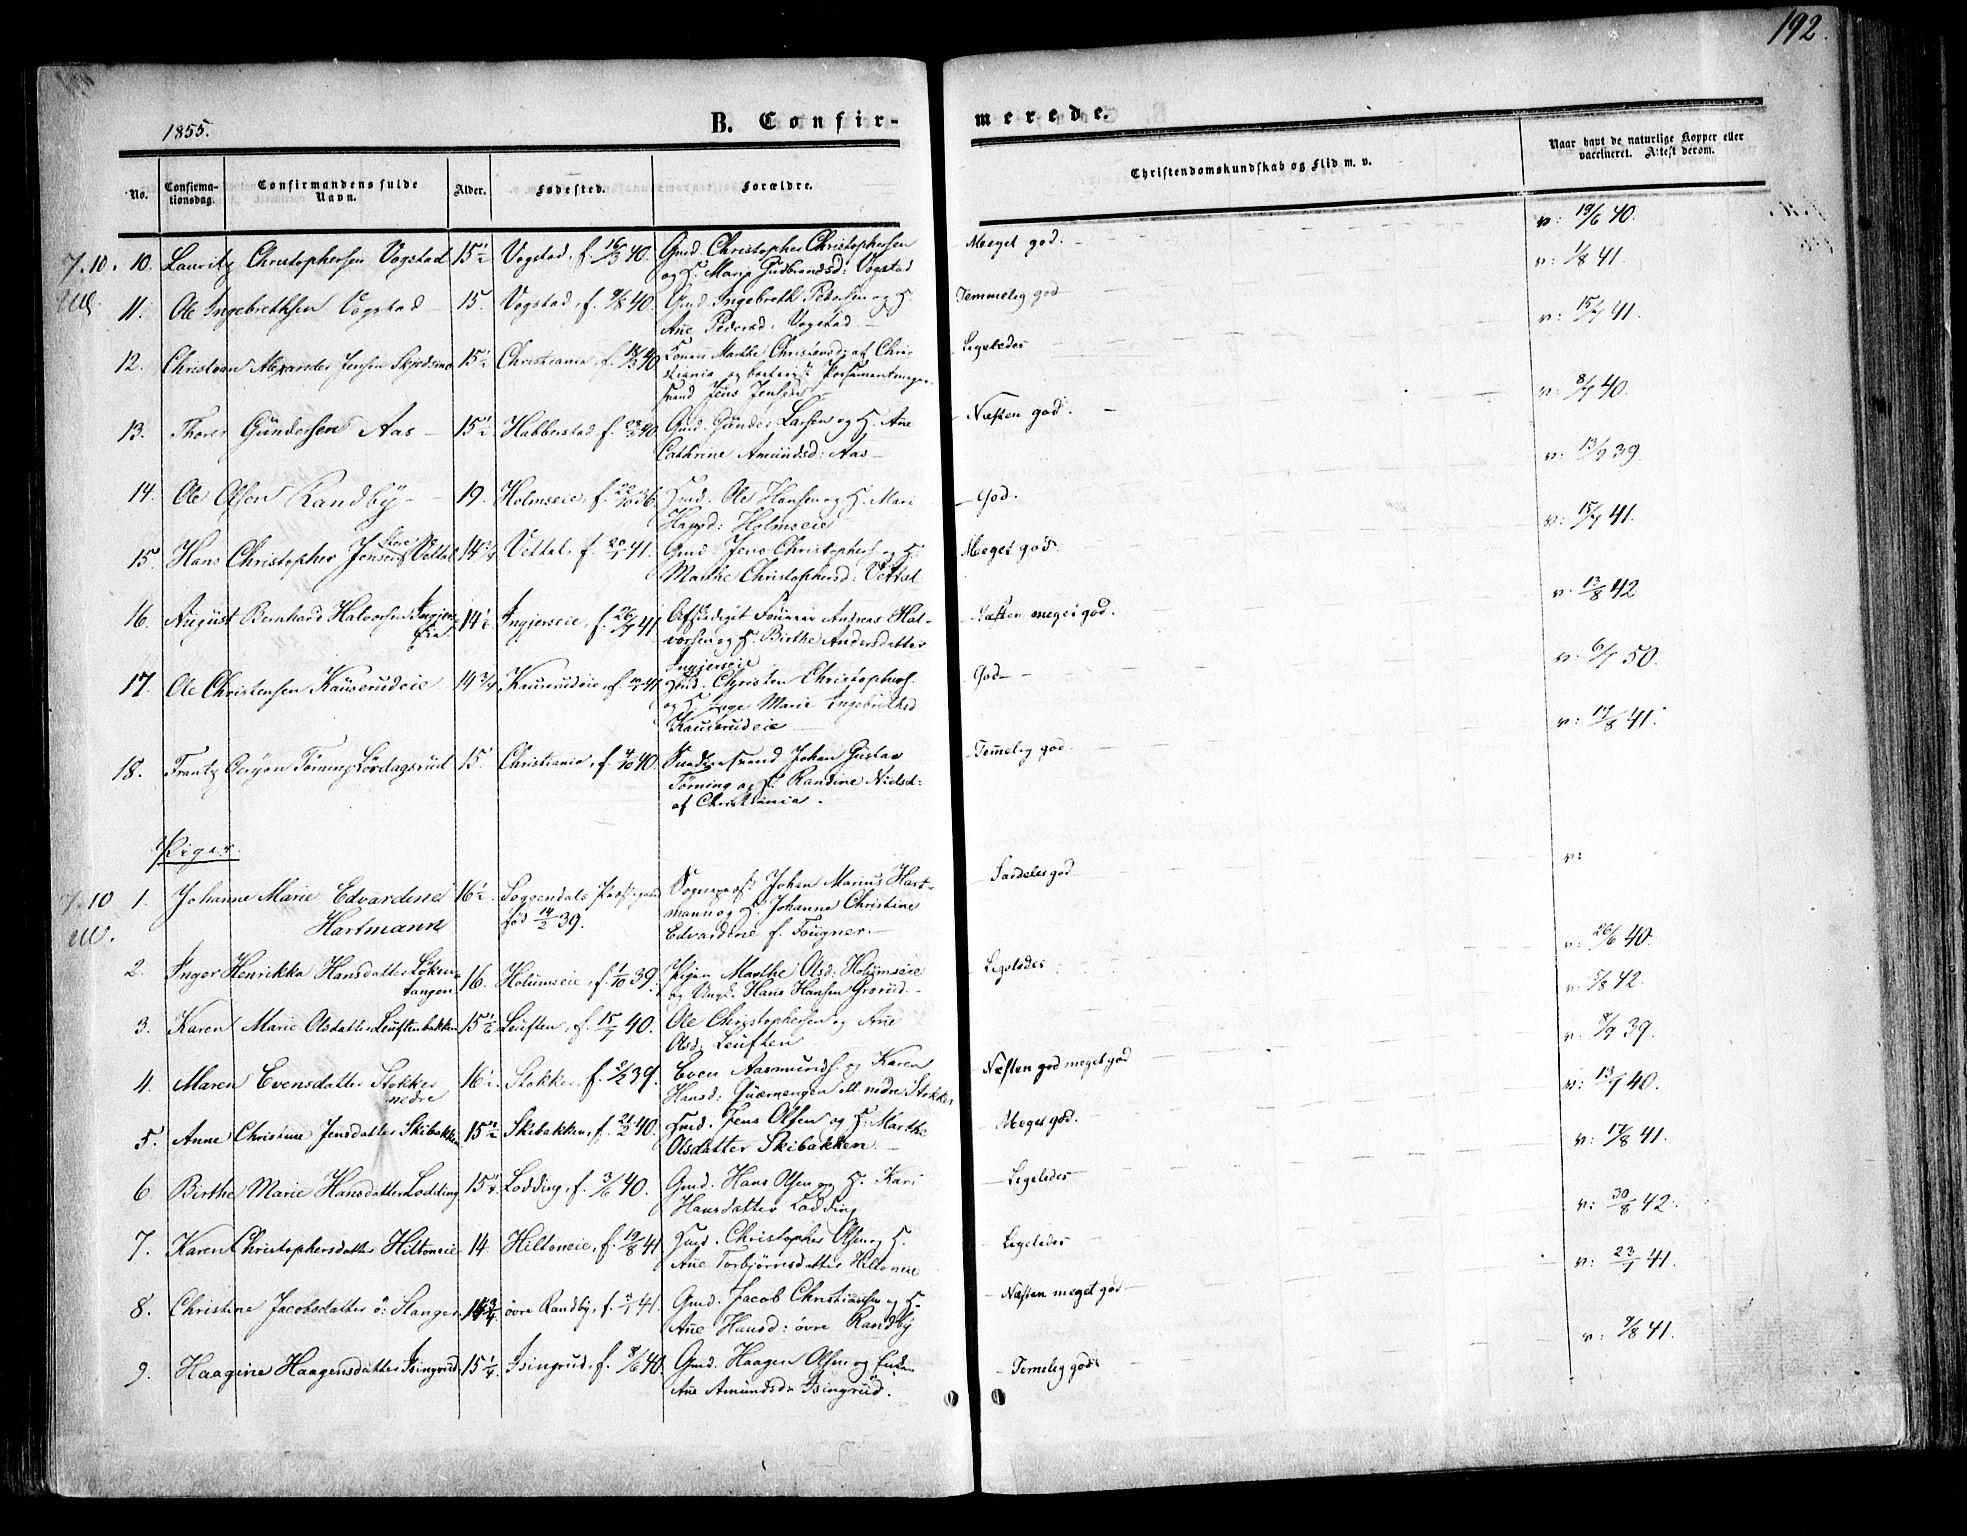 192.
1855.
B. Confir-
merede.
No.
Confirma-
tionsdag.
Confirmandens fulde
Navn.
Alder.
Fødested.
Forældre.
Christendomskundskab og Flid m. v.
Naar havt de naturlige Kopper eller
vaccineret. Attest derom.
7.10. 10. Lauritz Christophersen Vogstad 15½ Vogstad, f. 16/3 40. Gmd. Christopher Christophersen
og H. Marie Gudbrandsd: Vogstad
Meget god. v: 19/6 40.
11. Ole Ingebrethsen Vogstad 15. Vogstad, f. 9/8 40. Gmd. Ingebreth Pedersen og H.
Ane Pedersd: Vogstad
Temmelig god v: 1/8 41.
12. Christian Alexander Jensen Skjedsmo 15½ Christiania, f. 18/3 40 Marthe Christensd: af Chri-
stiania og
Jens Jensen
Ligeledes v: 15/7 41.
13. Thorer Gundersen Aas 15½ Habberstad f. 28/2 40. Gmd. Gunder Larsen og H. Ane
Cathrine Amundsd: Aas
Næsten god. v: 8/7 40.
14. Ole Olsen Randby 19. Holmseie, f. 22/10 36. Hmd. Ole Hansen og H. Mari
Hagsd: Holmseie
God. v: 13/7 39
15. Hans Christopher Jensen Store Vettal 14¾ Vettal, f. 20/1 41. Gmd. Jens Christophers. og H.
Marthe Christophersd: Vettal
Meget god. v: 15/7 41.
16. August Bernhard Halvorsen Ingjers-
eie 14½ Ingjerseie, f. 26/4 41 Afskediget Andreas Hal-
vorsen og H. Birthe Andersdatter
Ingjerseie
Næsten meget god. v: 13/8 42
17. Ole Christensen Kauserudeie 14¾ Kauserudeie, f. 41 Hmd. Christen Christophers.
og H. Inge Marie Ingebrethsd
Kauserudeie
God v: 6/7 50.
18. Frantz Gerjon Tørning Løvdagsrud 15 Christiania, f. 4/10 40. Johan Gustav
Tørning og H. Randine Nielsd:
af Christiania.
Temelig god. v: 17/8 41.
Piger.
7.10 1. Johanne Marie Edvardine
Hartmann 16½ Soggendals Præstegjeld
fød 14/2 39. Sogneprest Johan Marius Hart-
mann og H. Johanne Christine
Edvardine f. Fougner.
Særdeles god v:
2. Inger Henrikka Hansdatter Løken-
tangen 16. Holumseie, f. 1/10 39. Pigen Marthe Olsd: Holumseie
og Ungk. Hans Hansen Grorud.
Ligeledes v: 26/6 40.
3. Karen Marie Olsdatter Leuftenbakken 15½ Leuften, f. 15/7 40. Ole Christophersen og Ane
Olsd: Leuften
v: 5/8 42.
4. Maren Evensdatter Stokker
nedre 16½ Stokker, f. 5/2 39. Even Aasmunds. og Karen
Hansd: Quærnengen ell nedre Stokker
Næsten god meget god v: 8/9 39.
5. Anne Christine Jensdatter Skibakken 15½ Skibakken, f. 21/2 40. Hmd. Jens Olsen og H. Marthe
Olsdatter Skibakken.
Meget god. v: 13/7 40.
6 Birthe Marie Hansdatter Lodding 15¼ Lodding, f. 3/6 40. Gmd. Hans Olsen og H. Kari
Hansdatter Lodding
Ligeledes v: 17/8 41.
7. Karen Christophersdatter Hiltoneie 14. Hiltoneie, f. 19/8 41 Hmd. Christopher Olsen og H.
Ane Torbjørnsdatter Hiltoneie
Ligeledes v: 30/8 42.
8. Christine Jacobsdatter ö: Slanger øvre Randby, f. 3/1 41. Gmd. Jacob Christiansen og H.
Ane Hansd: øvre Randby
Næsten meget god v: 23/7 41.
9. Haagine Haagensdatter Isingrud 15¼ Isingrud, f. 8/6 40. Gmd. Haagen Olsen og Enke
Ane Amundsdr Isingrud.
Temelig god v: 9/8 41.